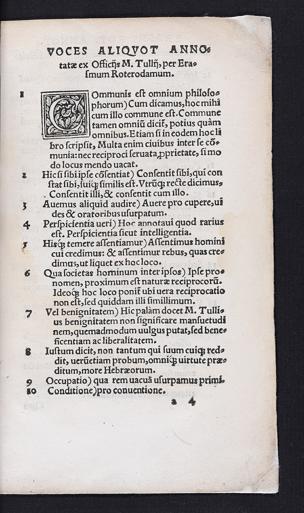 VOCES ALIQVOT ANNO-
tatæ ex Officijs M. Tullij, per Eras-
mum Roterodamum.
1 COmmunis est omnium philoso-
phorum) Cum dicamus, hoc mihi
cum illo commune est. Commune
tamen omniū dicit, potius quàm
omnibus. Etiam si in eodem hoc li
bro scripsit, Multa enim ciuibus inter se cō-
munia: nec reciproci seruata proprietate, si mo
do locus mendo uacat.
2 Hic si sibi ipse cōsentiat) Consentit sibi, qui con
stat sibi, suiq; similis est. Vtrūq; recte dicimus,
Consentit illi, & consentit cum illo.
3 Auemus aliquid audire) Auere pro cupere, ui
des & oratoribus usurpatum.
4 Perspicientia ueri) Hoc annotaui quod rarius
est. Perspicientia sicut intelligentia.
5 Hisq; temere assentiamur) Assentimus homini
cui credimus: & assentimur rebus, quas cre-
dimus, ut liquet ex hoc loco.
6 Qua societas hominum inter ipsos) Ipse pro-
nomen, proximum est naturæ reciprocorū.
Ideoq; hoc loco posuit ubi uera reciprocatio
non est, sed quiddam illi simillimum.
7 Vel benignitatem) Hic palàm docet M. Tulli-
us benignitatem non significare mansuetudi
nem, quemadmodum uulgus putat, sed bene-
ficentiam ac liberalitatem.
8 Iustum dicit, non tantum qui suum cuiq; red-
dit, uerūetiam probum, omniq; uirtute præ-
ditum, more Hebræorum.
9 Occupatio) qua rem uacuā usurpamus primi.
10 Conditione) pro conuentione.
a 4